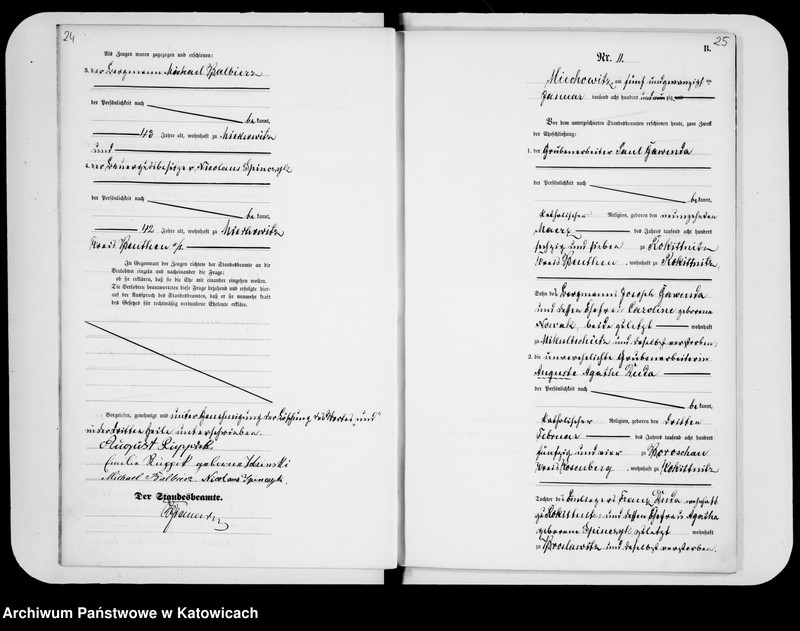 24
Als Zeugen waren zugezogen und erschienen:
3. der Bergmann Michael Balbierz
der Persönlichkeit nach
bekannt,
43 Jahre alt, wohnhaft zu Miechowitz
und
4. der Bauergutsbesitzer Nicolaus Spinczyk
der Persönlichkeit nach
bekannt,
42 Jahre alt, wohnhaft zu Miechowitz
Kreis Beuthen o/s.
In Gegenwart der Zeugen richtete der Standesbeamte an die
Verlobten einzeln und nacheinander die Frage:
ob sie erklären, daß sie die Ehe mit einander eingehen wollen.
Die Verlobten beantworteten diese Frage bejahend und erfolgte hier-
auf der Ausspruch des Standesbeamten, daß er sie nunmehr kraft
des Gesetzes für rechtmäßig verbundene Eheleute erkläre.
Vorgelesen, genehmigt und unter Genehmigung der Löschung des Wortes „und"
in der dritten Zeile unterschrieben.
August
Emilie geborene
Michael Balbierz Nicolaus Spinczyk.
Der Standesbeamte.
25
B.
Nr. 11.
Miechowitz am fünf und zwanzigsten
Januar tausend acht hundert
Vor dem unterzeichneten Standesbeamten erschienen heute, zum Zweck
der Eheschließung:
1. der Grubenarbeiter Paul Gawenda
der Persönlichkeit nach
bekannt,
katholischer Religion, geboren den neunzehnten
Maerz des Jahres tausend acht hundert
sechzig und sieben zu Rokittnitz
Kreis Beuthen, wohnhaft zu Rokittnitz,
Sohn des Bergmanns Joseph Gawenda
und dessen Ehefrau Caroline geborene
Nowak, beide zuletzt wohnhaft
zu Mikultschütz und daselbst verstorben,
2. die unverehelichte Grubenarbeiterin
Auguste Agathe Duda
der Persönlichkeit nach
bekannt,
katholischer Religion, geboren den dritten
Februar des Jahres tausend acht hundert
fünfzig und vier zu Boroschau
Kreis Rosenberg, wohnhaft zu Rokittnitz
Tochter des Einliegers Franz Duda wohnhaft
zu Rokittnitz und dessen Ehefrau Agathe
geborene Spinczyk zuletzt wohnhaft
zu Broslawitz und daselbst verstorben.
Archiwum Państwowe w Katowicach